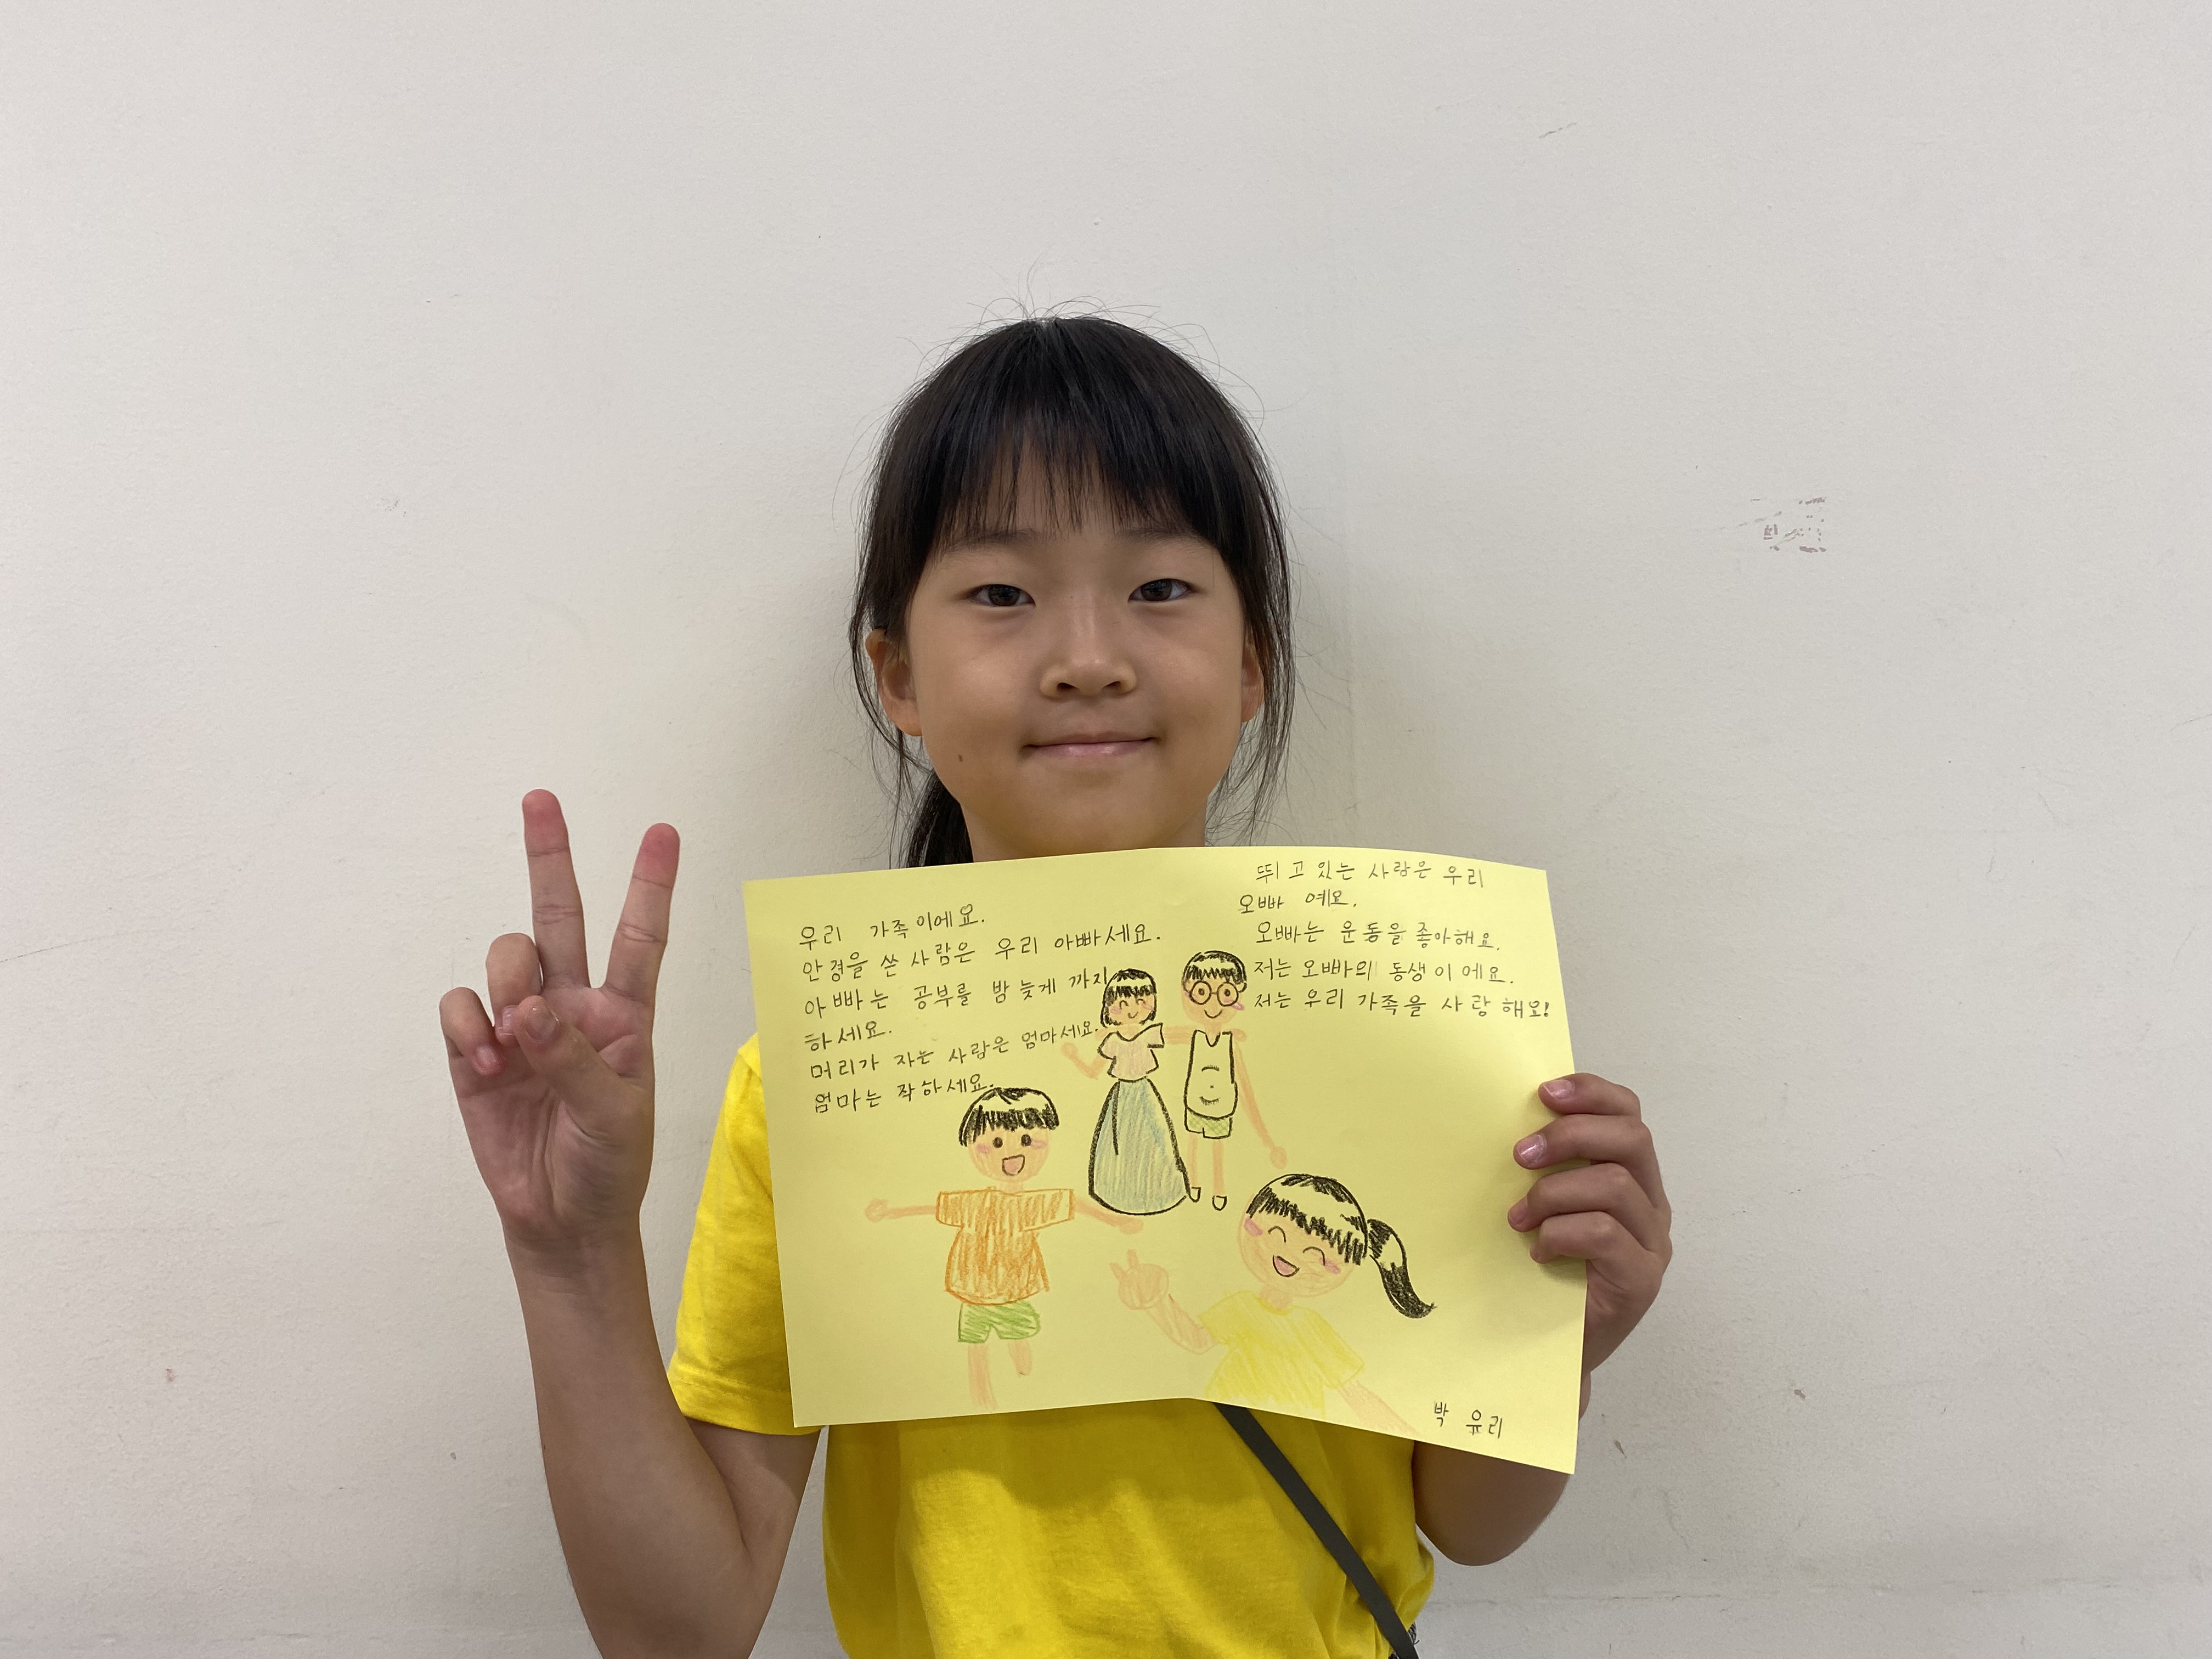 우리 가족이에요.
안경을 쓴 사람은 우리 아빠세요.
아빠는 공부를 밤 늦게 까지
하세요.
머리가 자는 사람은 엄마세요.
엄마는 작하세요.
뛰고 있는 사람은 우리
오빠 예요.
오빠는 운동을 좋아해요.
저는 오빠의 동생이에요.
저는 우리 가족을 사랑해요!
박 유리